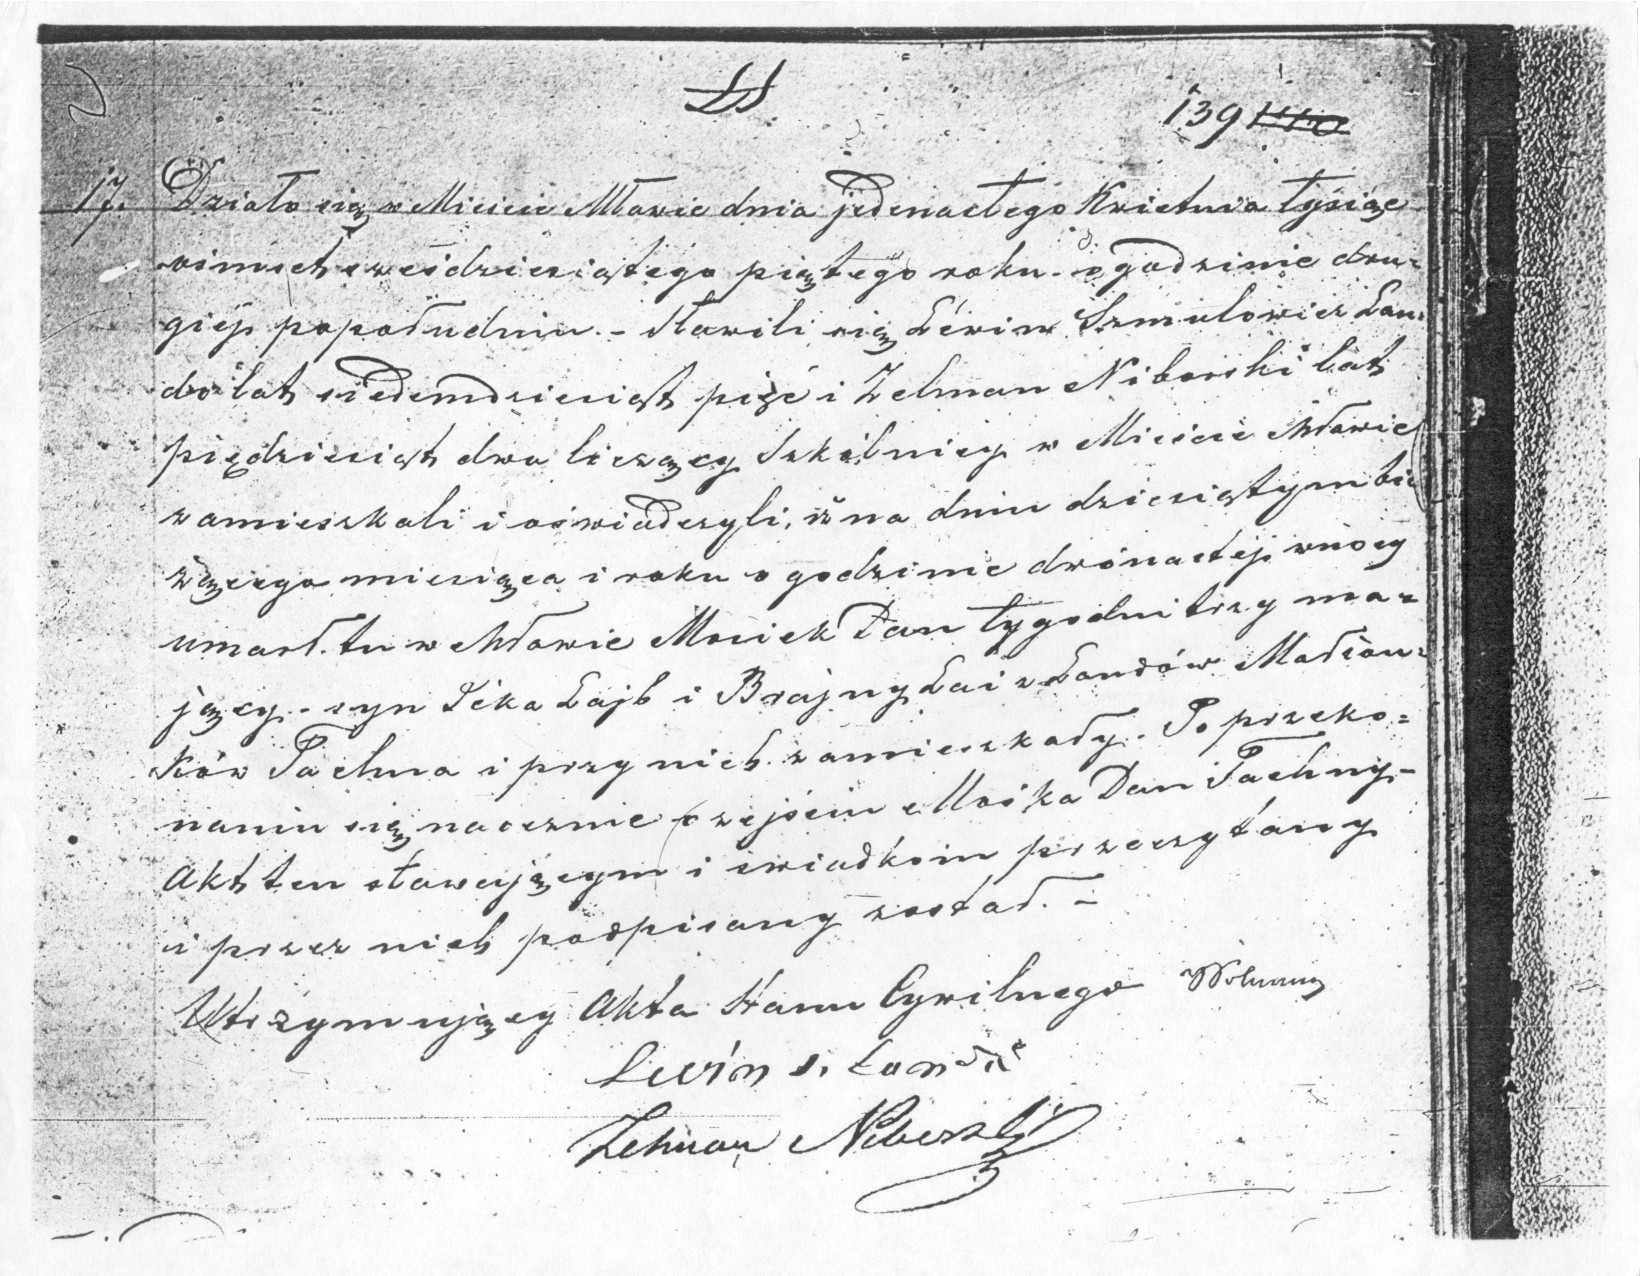 139
17. Działo się w Mieście Mławie dnia jedenastego Kwietnia tysiąc
ośmset sześdziesiątego piątego roku o godzinie dru=
giej popołudniu. - Stawili się Lewin Szmulowicz Lan=
do lat siedemdziesiąt pięć i Zelman Niborski lat
piędziesiąt dwa liczący Szkolnicy w Mieście Mławie
zamieszkali i oświadczyli, iż na dniu dziesiątym bie
żącego miesiąca i roku o godzinie dwónastej w nocy
umarł tu w Mławie Mosiek Dan tygodni trzy ma=
jący - syn Icka Lajb i Brajny Łai z Landów Małżon=
ków Pachna i przy nich zamieszkały. Po przeko=
naniu się naocznie o zejściu Mośka Dan Pachny -
Akt ten stawającym i świadkom przeczytany
i przez nich podpisany został. -
Utrzymujący Akta Stanu Cywilnego
Lewin s. Lande
Zelman Niborski